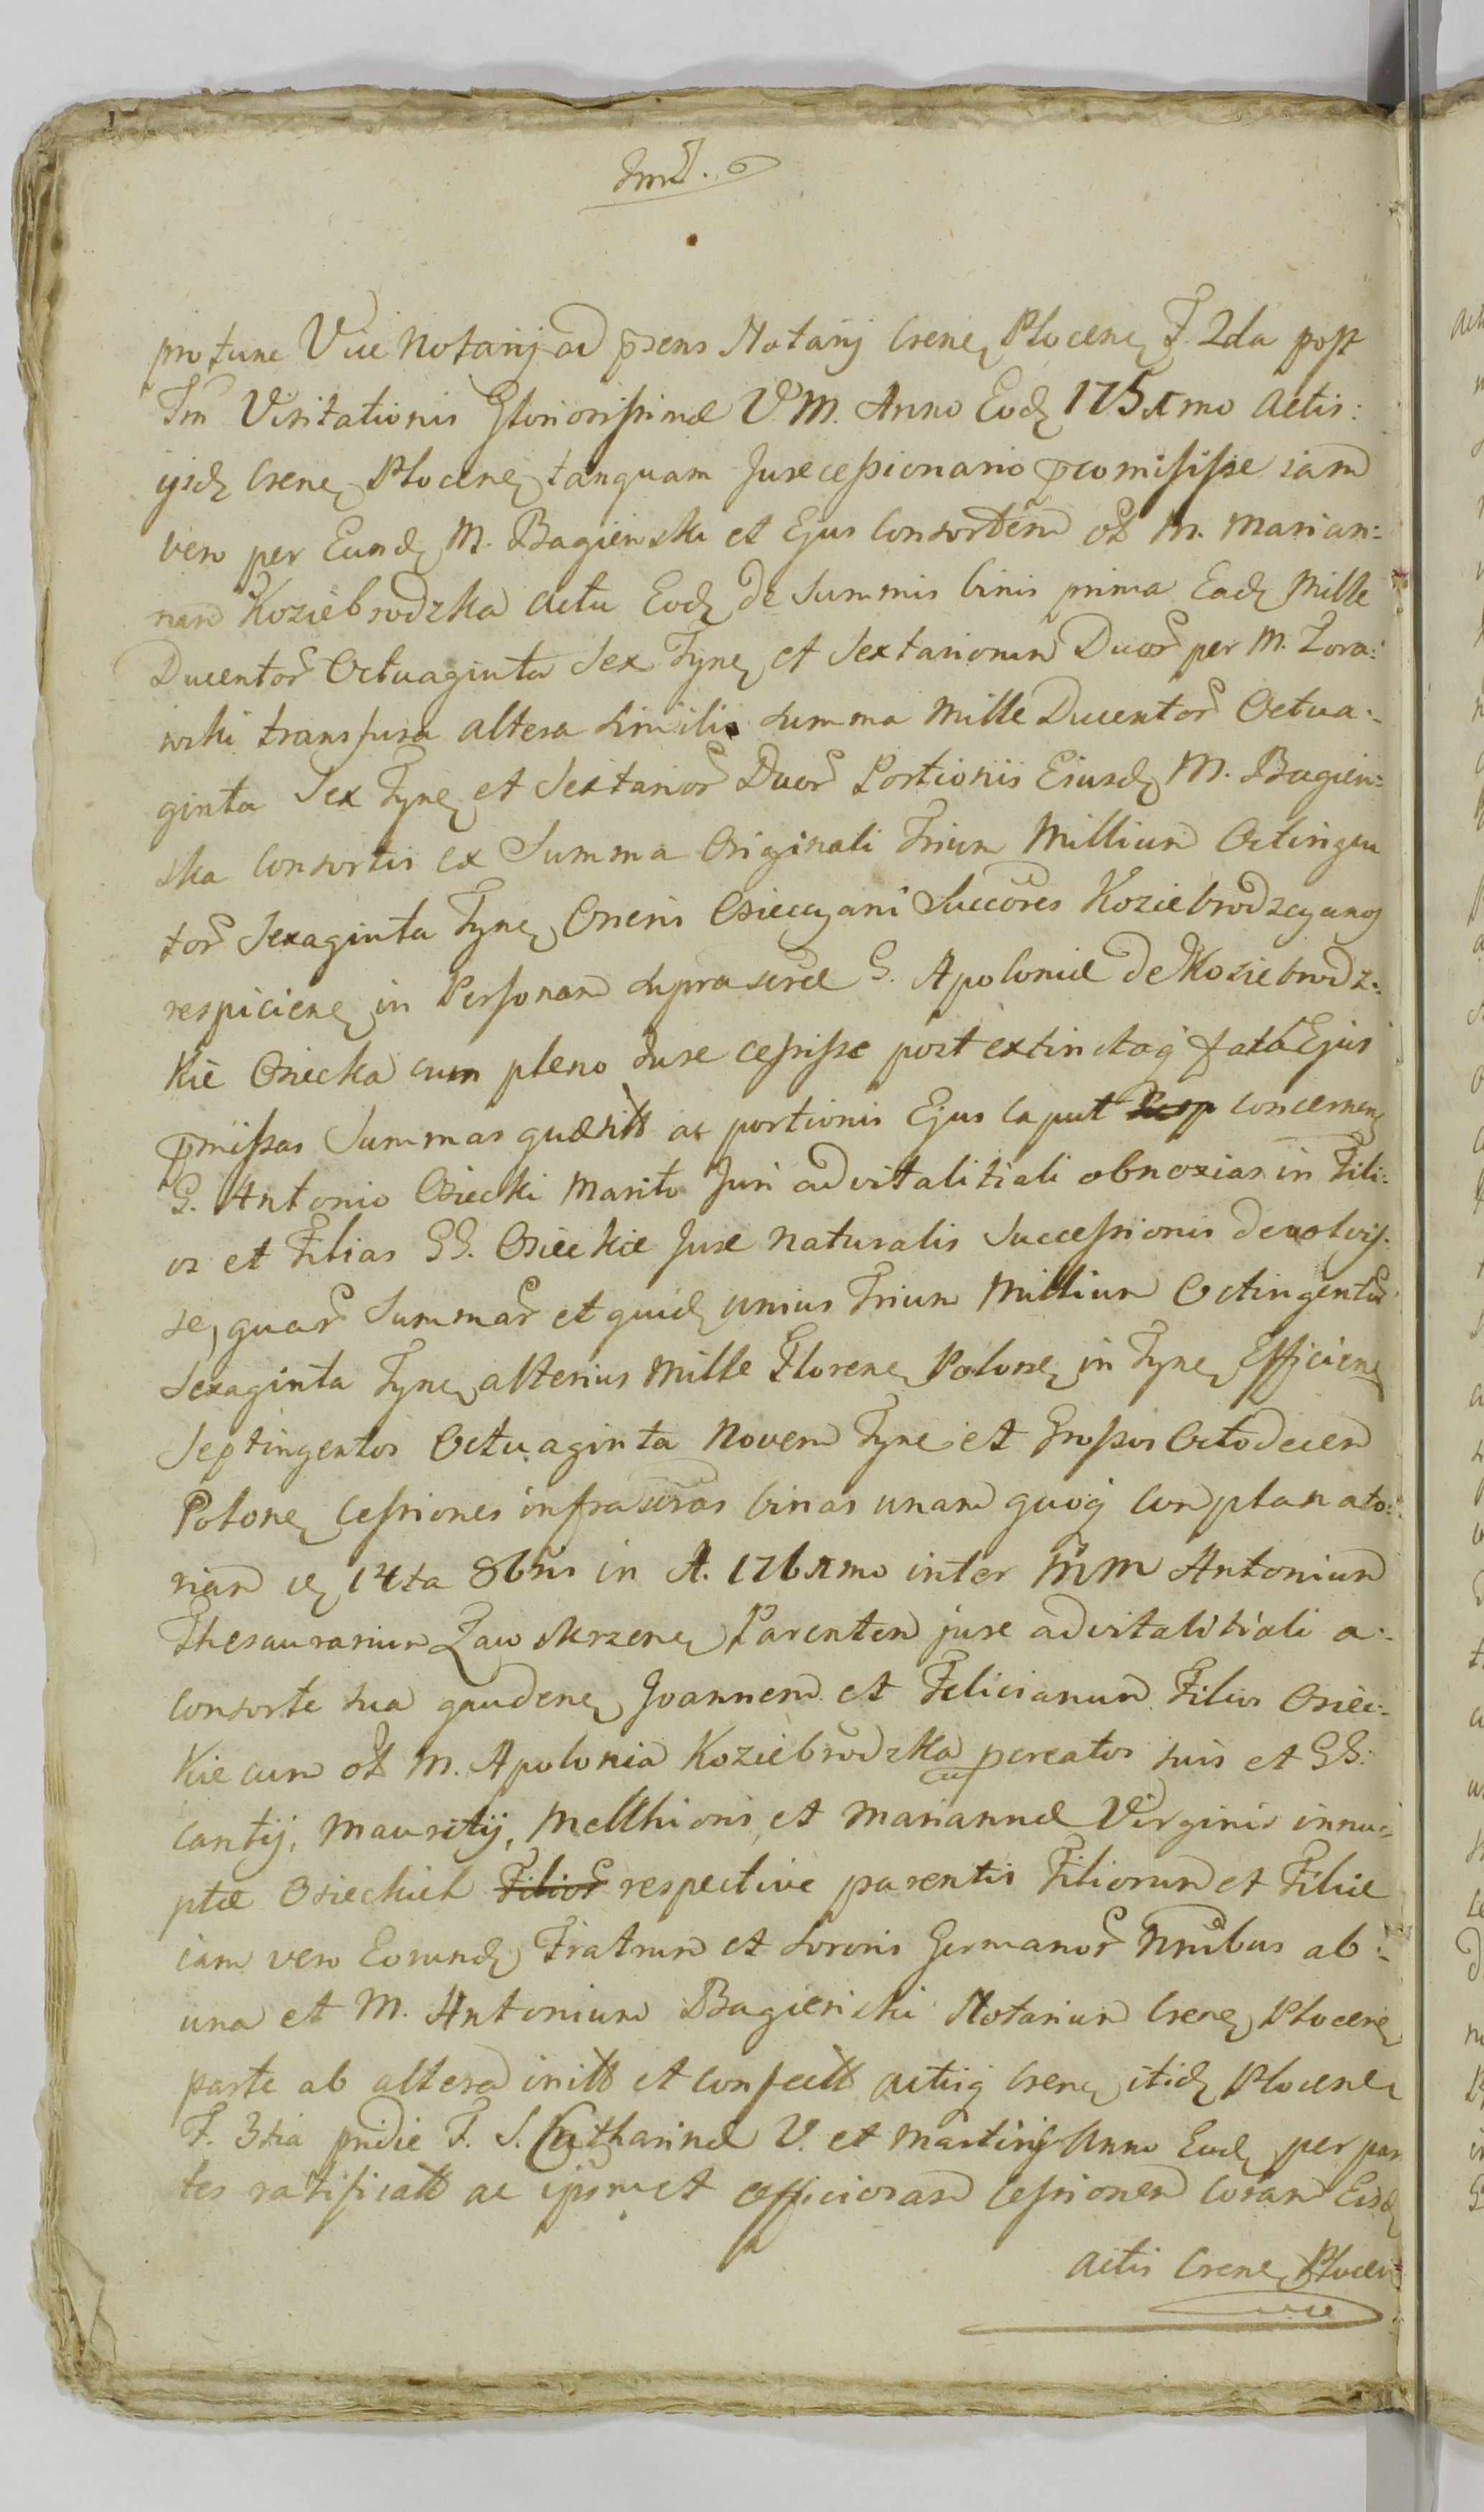 protunc Vice Notarij ad p̄sens Notarij Crenẽ Plocenẽ F. 2da post
Fm̄ Visitationis Gloriosissimæ V. M. Anno Eodẽ 175πmo Actis:
ijsdẽ Crenẽ Plocenẽ tanquam Jurecessionario p̄comisisse iam
vero per Eundẽ M. Bagienski et Ejus Consortem oł M. Marian:
nam Koziebrodzka Actu Eodẽ de Summis binis prima Eadẽ Mille
Ducentor̃ Octuaginta Sex Tynẽ et Sextarionum Duor̃ per M. Zora:
wski transfusa altera simili summa Mille Ducentor̃ Octua:
ginta Sex Tynẽ et Sextarior̃ Duor̃ Portionis Eiusdẽ M. Bagien:
ska Consortis ex Summa Originali Trium Millium Octingen
tor̃ Sexaginta Tynẽ Oneris Osiecciani Succōres Koziebrodzcyanos
respiciene in Personam supra scrae G. Apoloniæ de Koziebrodz:
kie Osiecka cum pleno Jure cessisse post extinctaq̃ fata Ejus
p̄missas Summas quæsitt ac portionis Ejus caput Resp concernenẽ
G. Antonio Osiecki Marito Juri advitalitiali obnoxias in Fili:
os et Filias GG. Osieckie Jure naturalis Successionis devolvis:
se, quar̃ Summar̃ et quidẽ unius Trium Millium Octingentor̃
Sexaginta Tynẽ alterius Mille Florenẽ Polonẽ in Tynẽ Efficienẽ
Septingentos Octuaginta Novem Tynẽ et Grossos Octodecem
Polonẽ Cessiones infrascras binas unam quoq̃ Complanato:
riam de 14ta 8bris in A. 176πmo inter MM Antonium
Thesaurarium Zawskrzenẽ Parentem jure advitalitiali a:
Consorte sua gaudenẽ Joannem et Felicianum Filios Osiec:
kie cum oł M. Apolonia Koziebrodzka pcreatos suis et GG.
Cantij, Mauritij, Melchioris, et Mariannæ Virginis innu:
ptæ Osieckich Filior̃ respective parentis Filiorum et Filiæ
iam vero Eorundẽ Fratrum et Sororis Germanor̃ Nn̄ibus ab:
una et M. Antonium Bagienski Notarium Crenẽ Plocenẽ
parte ab altera initt et confectt actisq̃ Crenẽ itidẽ Plocenẽ
F. 3tia pridie F. S. Catharinæ V. et Martiris Anno Eodẽ per par
tes ratificatt ac ipsmet officiosam Cessionem Coram Eisdẽ
Actis Crenẽ Plocen